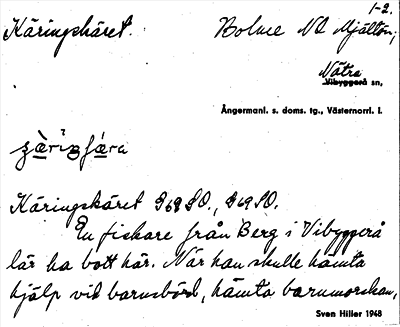 1-2.
Käringskäret. Bolme NO Mjältön,
Nätra
Vibyggerå sn,
Ångermanl. s. doms. tg., Västernorrl. l.
Käringskäret 869 SO., 869 SO.
En fiskare från Berg i Vibyggerå
lär ha bott här. När han skulle hämta
hjälp vid barnsbörd, hämta barnmorskan,
Sven Hiller 1948